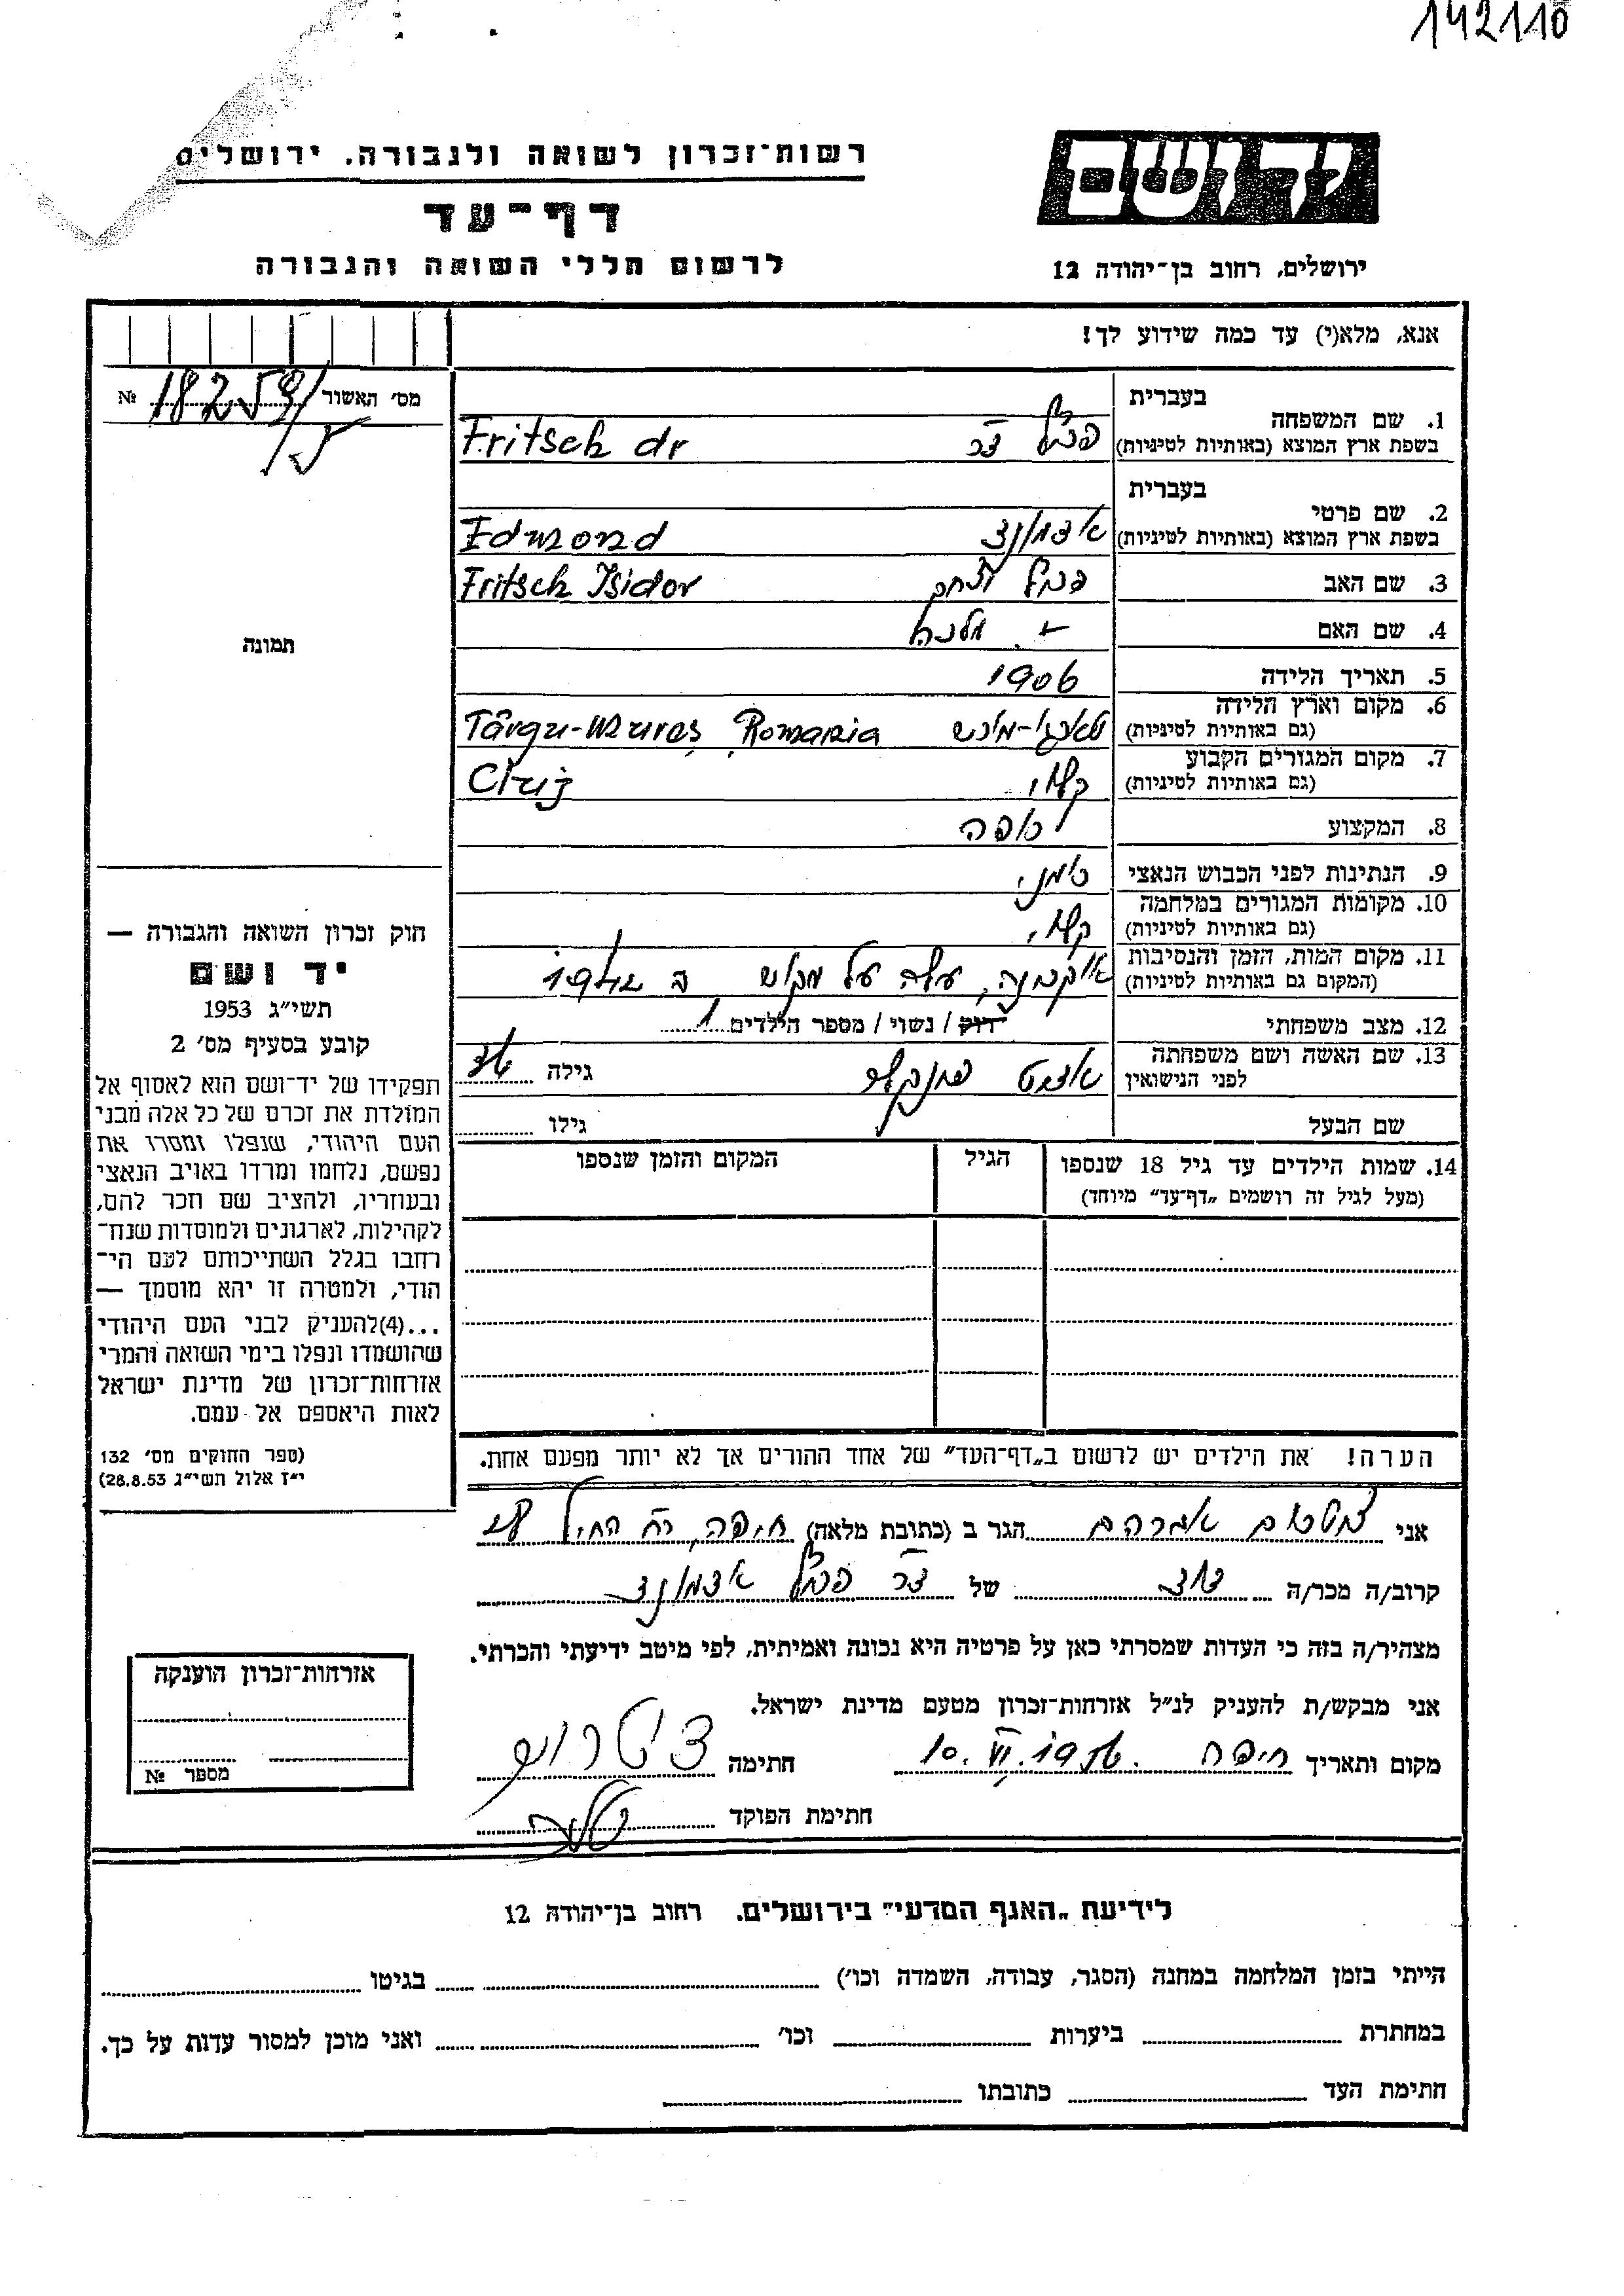 142110
רשות־זכרון לשואה ולגבורה, ירושלים
יד ושם
דף־עד
לרשום חללי השואה והגבורה
ירושלים, רחוב בן־יהודה 12
אנא, מלא(י) עד כמה שידוע לך!
מס׳ האשור № 18259
1. שם המשפחה בעברית
בשפת ארץ המוצא (באותיות לטיניות) Fritsch dr
2. שם פרטי בעברית
בשפת ארץ המוצא (באותיות לטיניות) אדמונד Edmond
3. שם האב Fritsch Isidor
4. שם האם מלכה
5. תאריך הלידה 1906
6. מקום וארץ הלידה
(גם באותיות לטיניות) Târgu-Mureş Romania
7. מקום המגורים הקבוע
(גם באותיות לטיניות) קלוז׳ Cluj
8. המקצוע רופא
9. הנתינות לפני הכבוש הנאצי רומני
10. מקומות המגורים במלחמה
(גם באותיות לטיניות) קלוז׳
11. מקום המות, הזמן והנסיבות
(המקום גם באותיות לטיניות) אוקרינה, עלה על מוקש ב 1942
12. מצב משפחתי רווק / נשוי / מספר הילדים 1
13. שם האשה ושם משפחתה
לפני הנישואין
גילה
שם הבעל גילו
14. שמות הילדים עד גיל 18 שנספו
(מעל לגיל זה רושמים „דף־עד״ מיוחד)
הגיל
המקום והזמן שנספו
הערה! את הילדים יש לרשום ב„דף־העד״ של אחד ההורים אך לא יותר מפעם אחת.
תמונה
חוק זכרון השואה והגבורה —
יד ושם
תשי״ג 1953
קובע בסעיף מס׳ 2
תפקידו של יד־ושם הוא לאסוף אל
המולדת את זכרם של כל אלה מבני
העם היהודי, שנפלו ומסרו את
נפשם, נלחמו ומרדו באויב הנאצי
ובעוזריו, ולהציב שם וזכר להם,
לקהילות, לארגונים ולמוסדות שנח־
רחבו בגלל השתייכותם לעם הי־
הודי, ולמטרה זו יהא מוסמך —
...(4) להעניק לבני העם היהודי
שהושמדו ונפלו בימי השואה והמרי
אזרחות־זכרון של מדינת ישראל
לאות היאספם אל עמם.
(ספר החוקים מס׳ 132
י״ז אלול תשי״ג 28.8.53)
אני אברהם הגר ב (כתובת מלאה) חיפה,
קרוב/ה מכר/ה דוד של אדמונד
מצהיר/ה בזה כי העדות שמסרתי כאן על פרטיה היא נכונה ואמיתית, לפי מיטב ידיעתי והכרתי.
אני מבקש/ת להעניק לנ״ל אזרחות־זכרון מטעם מדינת ישראל.
מקום ותאריך חיפה 10.VI.1956 חתימה
חתימת הפוקד
אזרחות־זכרון הוענקה
מספר №
לידיעת „האגף המדעי״ בירושלים. רחוב בן־יהודה 12
הייתי בזמן המלחמה במחנה (הסגר, עבודה, השמדה וכו׳) בגיטו
במחתרת ביערות וכו׳ ואני מוכן למסור עדות על כך.
חתימת העד כתובתו